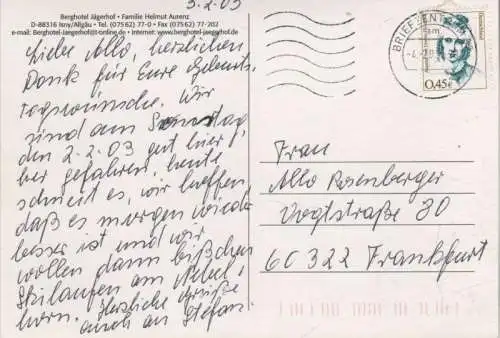 3.2.03
Berghotel Jägerhof • Familie Helmut Aurenz
D-88316 Isny/Allgäu • Tel. (07562) 77-0 • Fax (07562) 77-202
e-mail: Berghotel-Jaegerhof@t-online.de • Internet: www.berghotel-jaegerhof.de
Liebe Allo, herzlichen
Dank für Eure Geburts-
tagswünsche. Wir
sind am Sonntag,
den 2.2.03 gut hier-
her gefahren, heute
schneit es, wir hoffen,
daß es morgen wieder
besser ist und wir
wollen dann bißchen
Skilaufen am Nebel-
horn. Herzliche Grüße
auch an Stefan.
BRIEFZENTRUM
0,45€
Frau
Allo Rosenberger
Vogtstraße 30
60322 Frankfurt